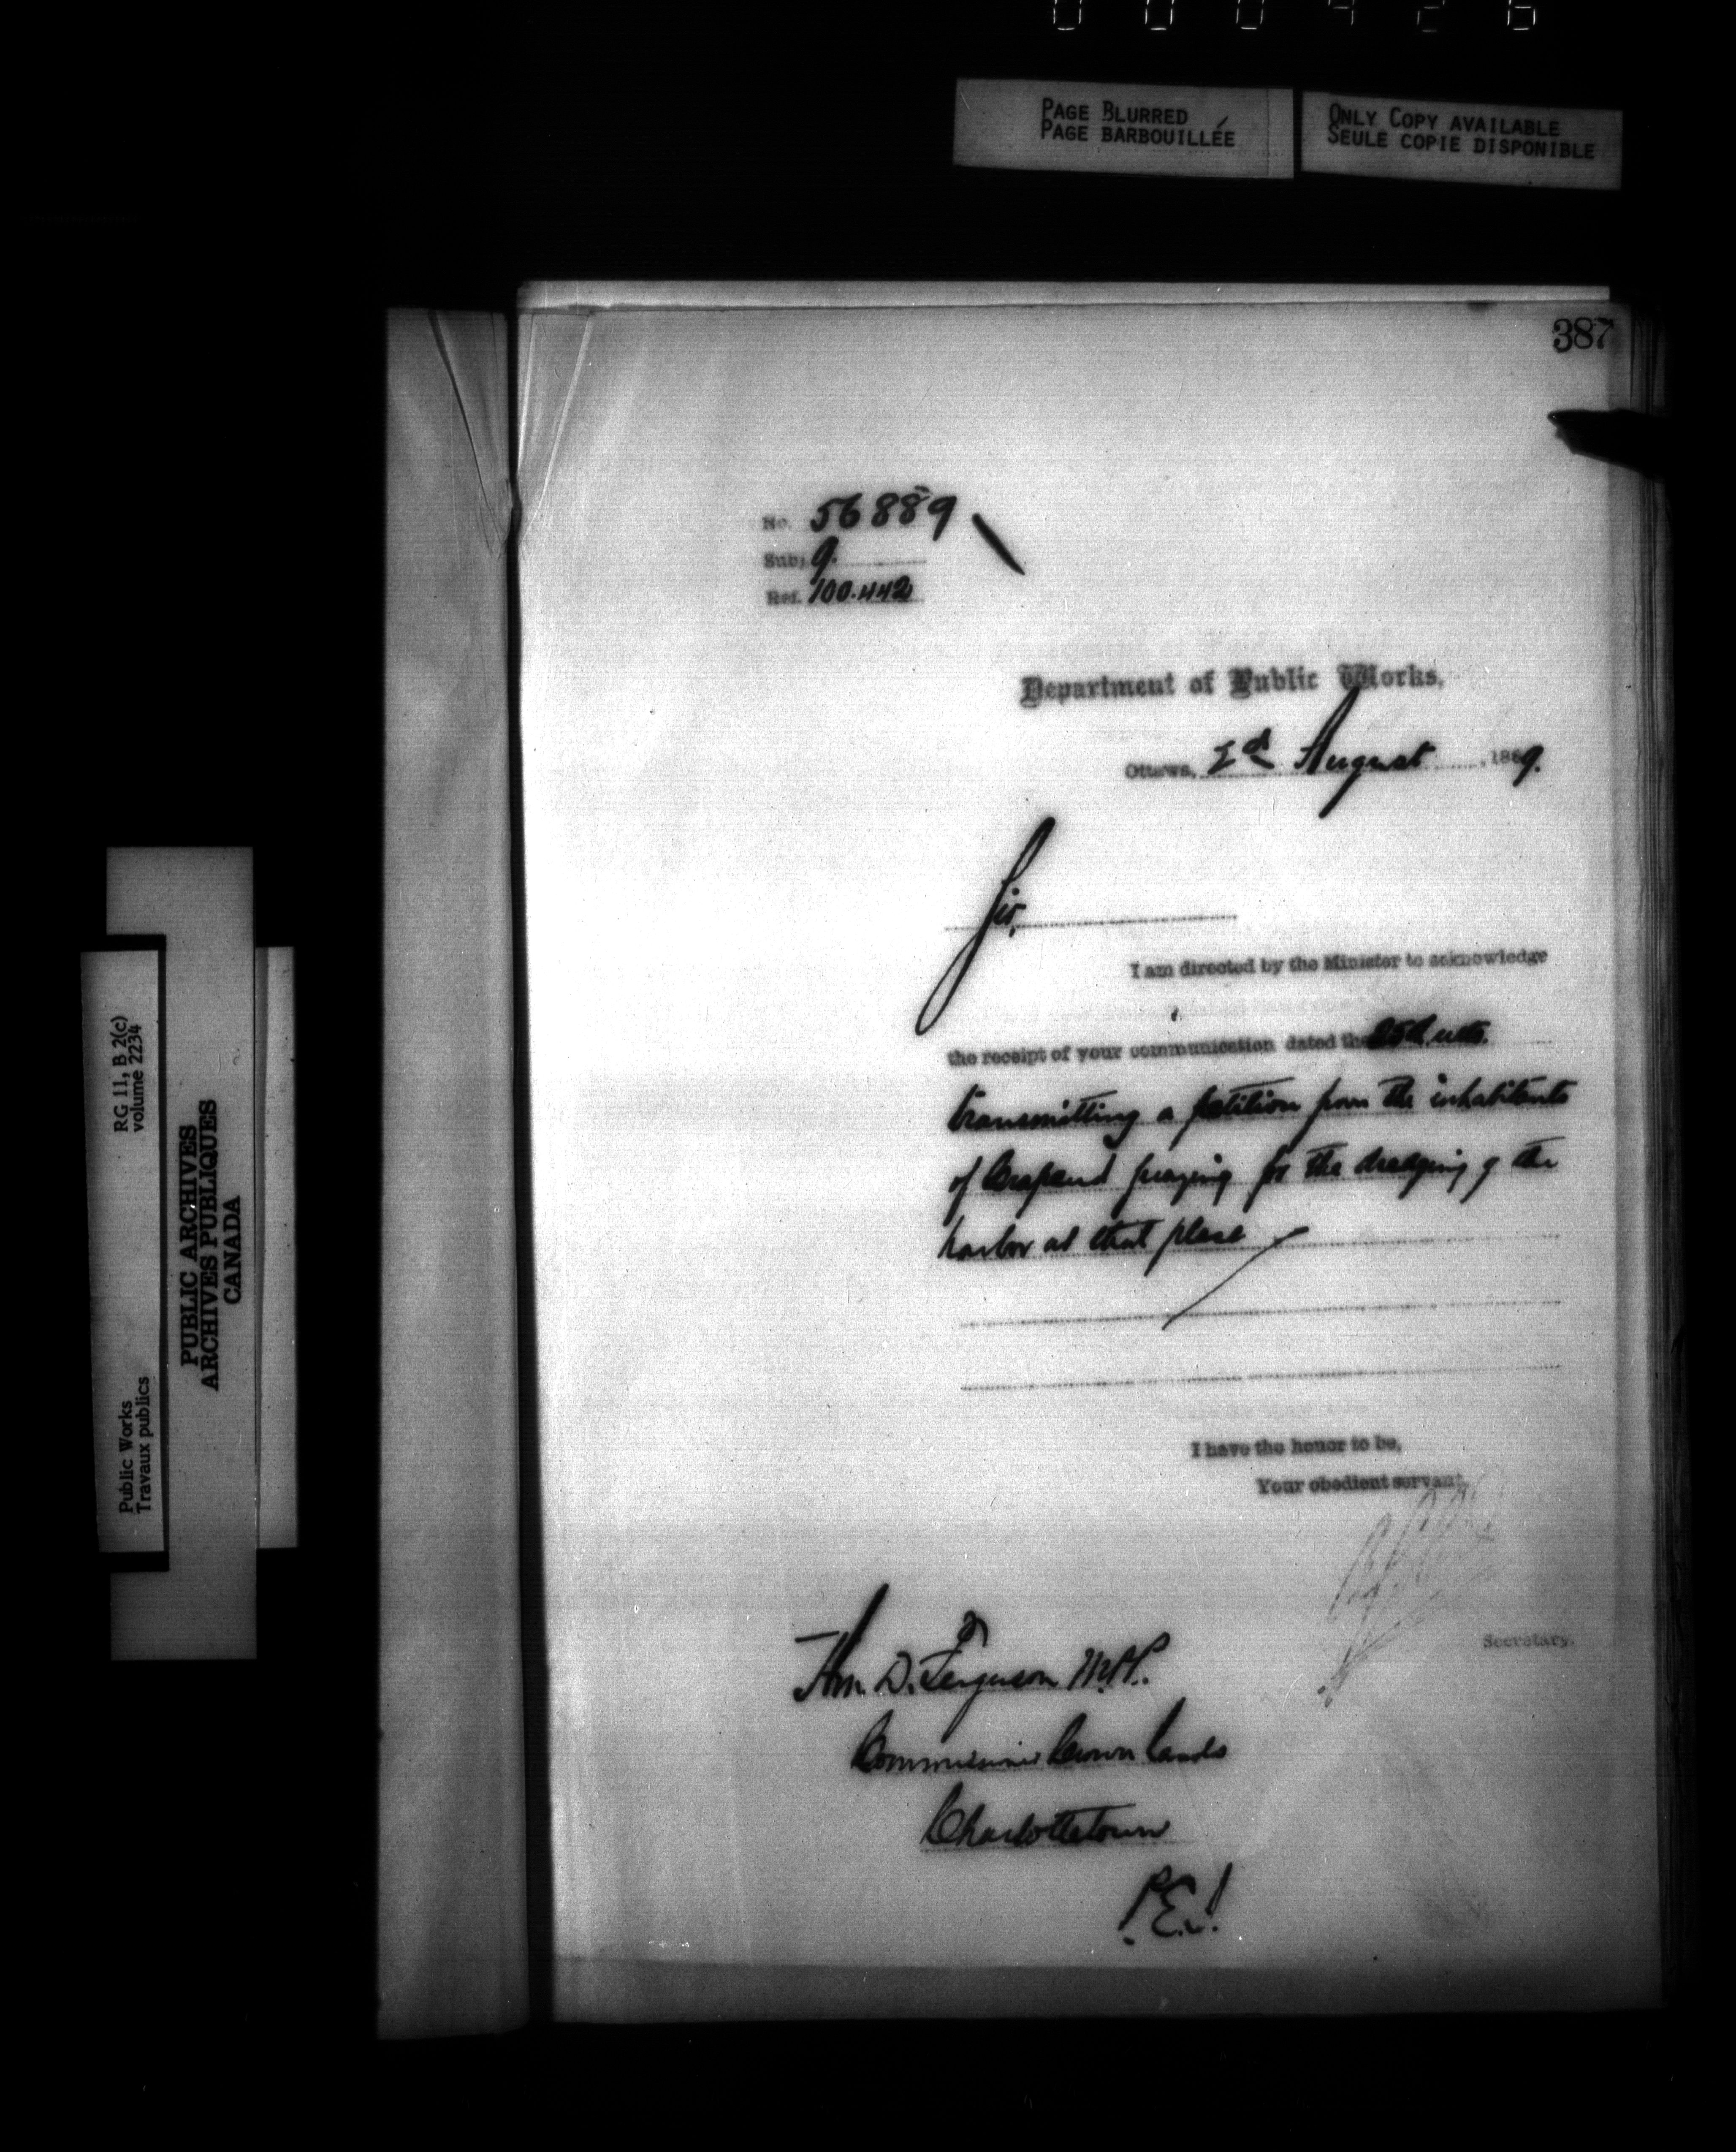 000426
PAGE BLURRED
PAGE BARBOUILLÉE
ONLY COPY AVAILABLE
SEULE COPIE DISPONIBLE
387
No. 56889
Subj. 9.
Ref. 100.442
Department of Public Works,
Ottawa, 2d August, 1889.
Sir,
I am directed by the Minister to acknowledge
the receipt of your communication dated the 25th ulto.
transmitting a petition from the inhabitants
of Crapaud praying for the dredging of the
harbor at that place
I have the honor to be,
Your obedient servant,
Secretary.
Hon. D. Ferguson M.P.P.
Commissioner Crown Lands
Charlottetown
P.E.I.
RG 11, B 2(c)
volume 2234
Public Works
Travaux publics
PUBLIC ARCHIVES
ARCHIVES PUBLIQUES
CANADA